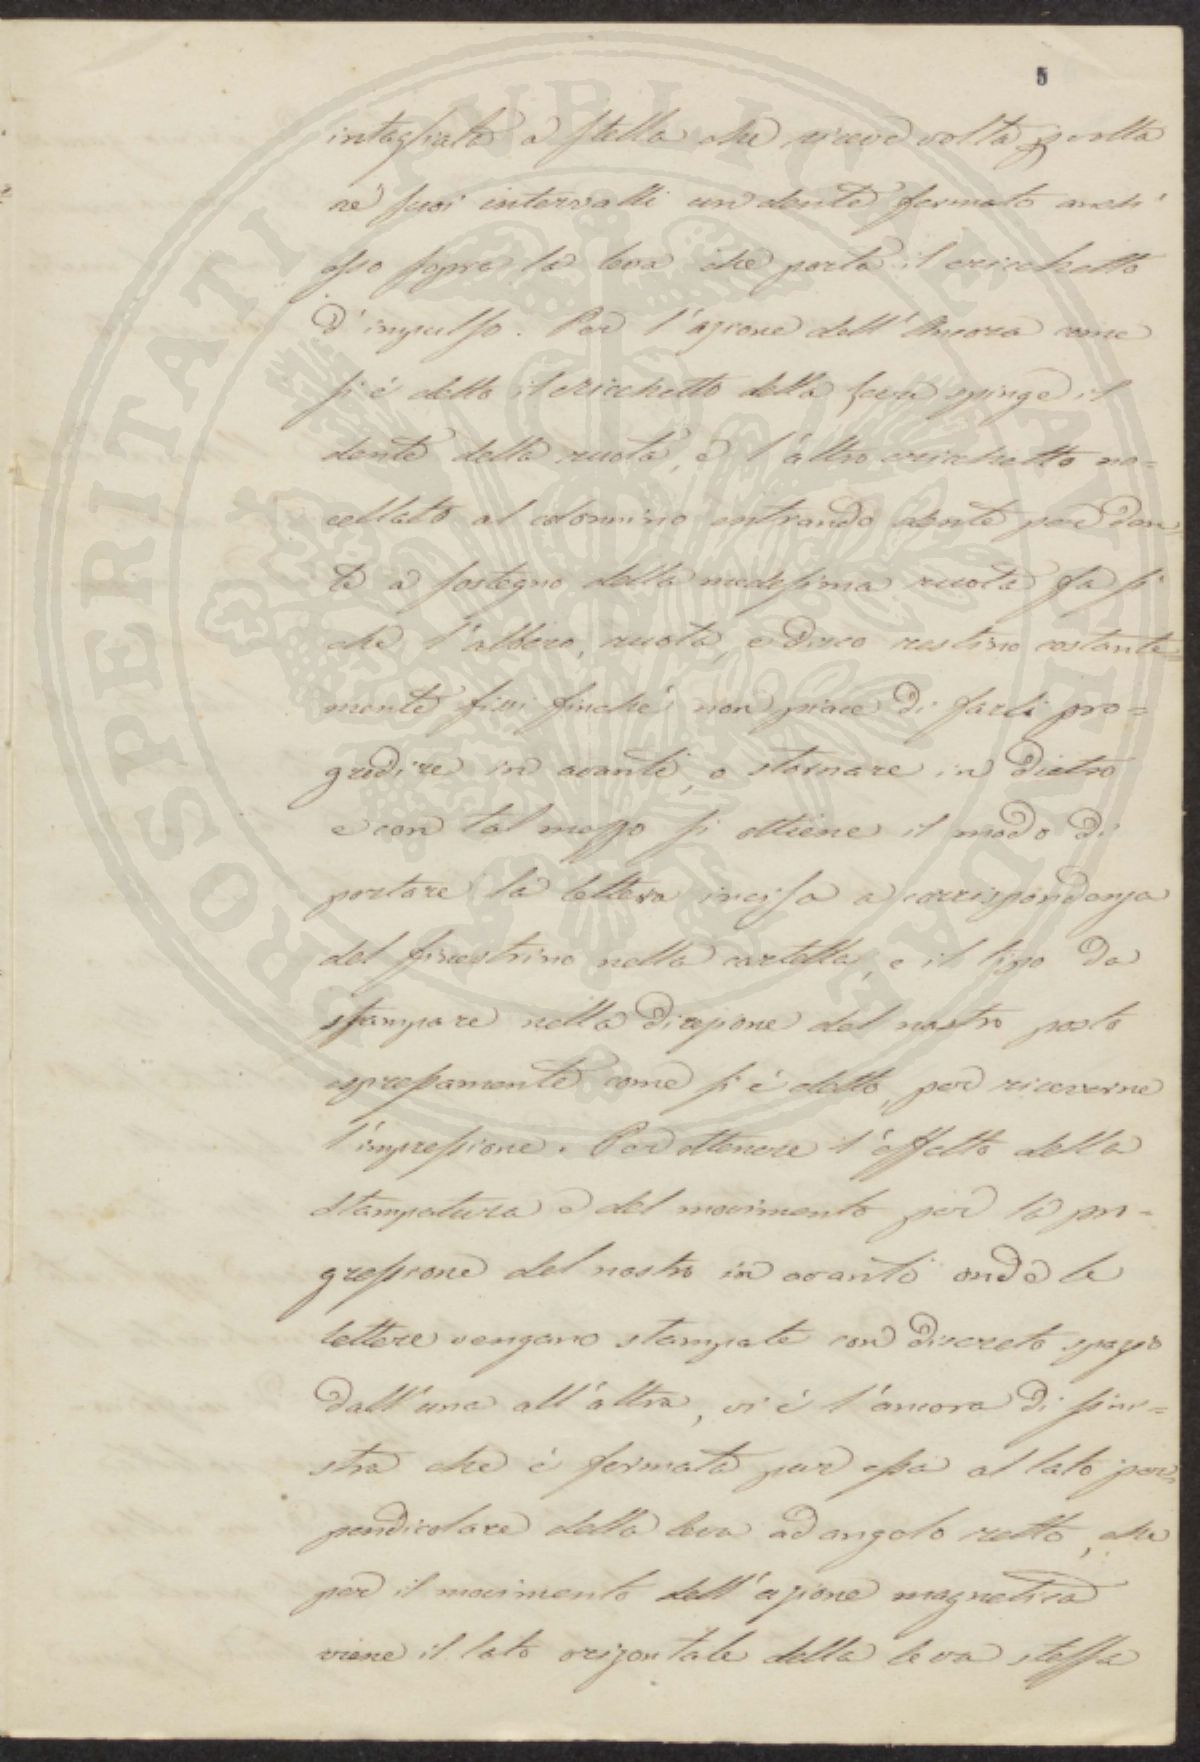 5
intagliato a stella che riceve volta p volta
ne suoi intervalli un dente fermato anch'
esso sopra la leva che porta il cricchetto
d'impulso. Per l'azione dell'Ancora come
si è detto il cricchetto della leva spinge il
dente della ruota, e l'altro cricchetto no=
cellato al colonnino entrando dente per den=
te a sostegno della medesima ruota fa si
che l'albero, ruota, e disco restino costante=
mente fissi finchè non piace di farli pro=
gredire in avanti, o stornare in dietro
e con tal mezzo si ottiene il modo di
portare la lettera incisa a corrispondenza
del finestrino nella cartella, e il tipo da
stampare nella direzione del nastro posto
espressamente come si è detto, per riceverne
l'impressione. Per ottenere l'effetto della
stampatura e del movimento per la pro=
gressione del nastro in avanti onde le
lettere vengano stampate con discreto spazio
dall'una all'altra, vi è l'ancora di sini=
stra che è fermata pur essa al lato per=
pendicolare della leva ad angolo retto, che
per il movimento dell'azione magnetica
viene il lato orizontale della leva stessa
PROSPERITATI PUBLICAE AUGENDAE